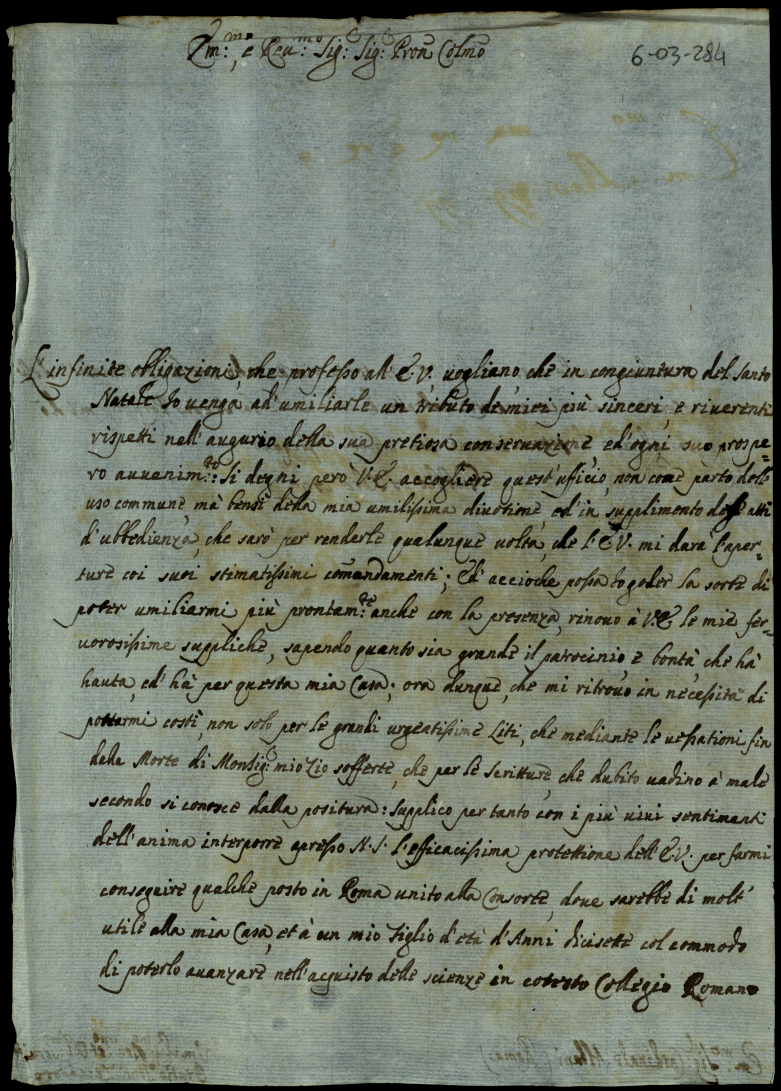 Em.mo, e Reu.mo Sig.e Sig.e Pron Colmo
6-03-284
L'infinite obligazioni, che professo all'E.V. uogliano, che in congiuntura del Santo
Natale Io uenga ad'umiliarle un tributo de miei più sinceri, e riuerenti
rispetti nell'augurio della sua pretiosa conseruazione, ed'ogni suo prospe-
ro auuenim.to: Si degni però V.E. accogliere quest'ufficio, non come parto dell'
uso commune, mà bensì della mia umilissima diuotione, ed in supplimento degl'atti
d'ubbedienza, che sarò per renderle qualunque uolta, che l'E.V. mi darà l'aper-
ture coi suoi stimatissimi comandamenti; Ed' accioche possa Io goder la sorte di
poter umiliarmi più prontam.te anche con la presenza, rinouo à V.E. le mie fer-
uorosissime suppliche, sapendo quanto sia grande il patrocinio, e bontà che hà
hauta, ed' hà per questa mia Casa; ora dunque, che mi ritrouo in necessità di
portarmi costì, non solo per le grandi urgentissime Liti, che mediante le uessationi fin
dalla Morte di Monsig.e mio Zio sofferte, che per le scritture, che dubito uadino à male
secondo si conosce dalla positura: Supplico per tanto con i più uiui sentimenti
dell'anima interporre apresso N.S. l'efficacissima protettione dell'E.V. per farmi
conseguire qualche posto in Roma unito alla Consorte, doue sarebbe di molt'
utile alla mia Casa, et à un mio Figlio d'età d'Anni dicisette col commodo
di poterlo auanzare nell'acquisto delle scienze in cotesto Collegio Romano